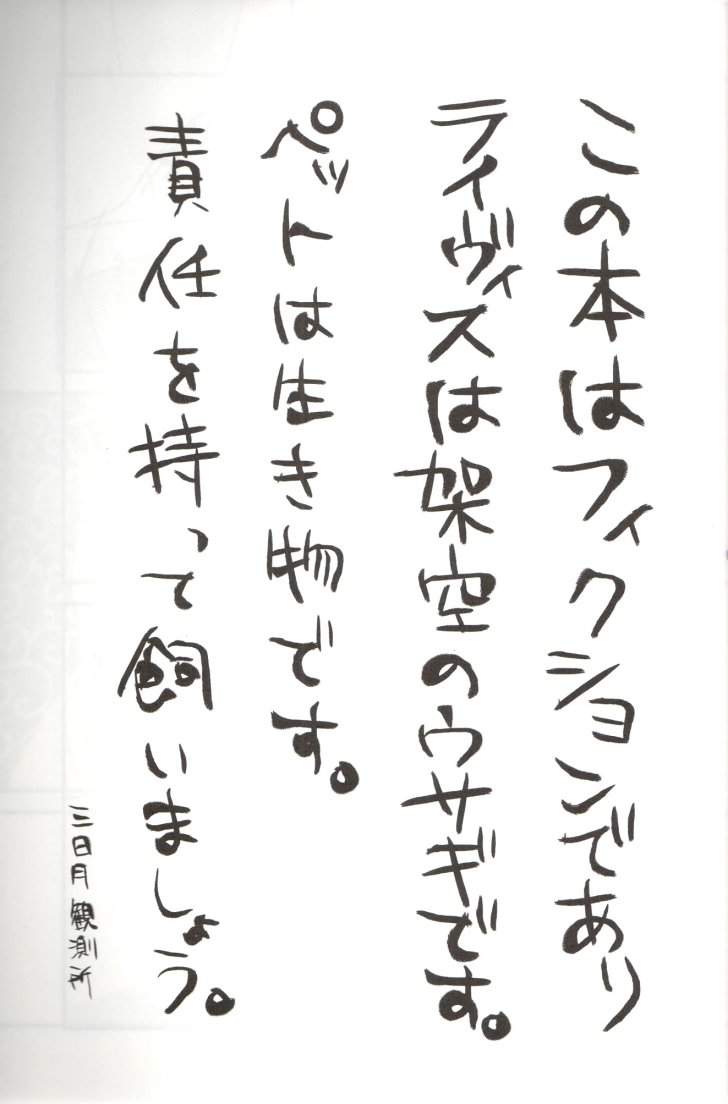 この本はフィクションであり
ティヴィスは架空のウサギです。
ペットは生き物です。
責任を持って飼いましょう。
三日月観測所